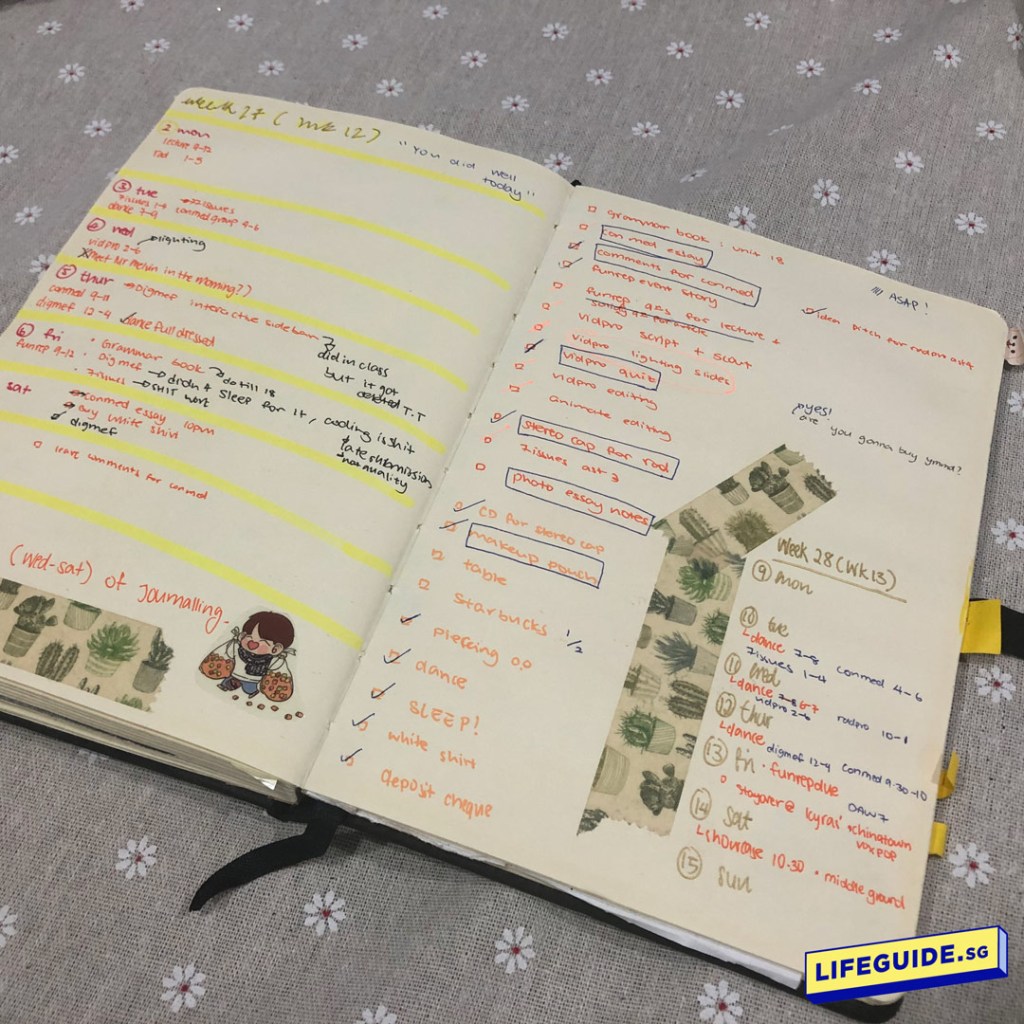 week 27 ( wk 12)
"You did well
today"
2 mon
lecture 9-12
rad 1-5
③ tue
7issues 1-4 7issues
dance 7-9 conmed group 4-6
④ wed
vidpro 2-6 lighting
meet Mr Melvin in the morning?)
⑤ thur
conmed 9-11 Digmef interactive sidebar
digmef 12-4 dance full dressed
did in class
but it got
deleted T.T
⑥ fri
funrep 9-12
• Grammar book do till 18
• Digmef didn't sleep for it, coding is shit
• 7issues SHIT work
late submission
not quality
sat
conmed essay 10pm
buy white shirt
digmef
leave comments for conmed
(wed-sat) of Journalling.
grammar book : unit 18
con med essay
comments for conmed
funrep event story
funrep qns for lecture
vidpro script + scout
vidpro lighting slides
vidpro quiz
vidpro editing
animate editing
stereo cap for rad
7issues ast 3
photo essay notes
CD for stereo cap
makeup pouch
table
Starbucks 1/2
piercing 0.0
dance
SLEEP!
white shirt
deposit cheque
ASAP!
idea pitch for
yes!
are you gonna buy
Week 28 (WK 13)
⑨ mon
⑩ tue
dance 7-8 conmed 4-6
7issues 1-4
⑪ wed
dance 7-8 6-7 radpro 10-1
vidpro 2-6
⑫ thur
dance digmef 12-4 conmed 9.30-10
⑬ fri • funrep
stayover @ kyra's chinatown
voxpop
⑭ sat
showcase 10-30 • middleground
⑮ sun
LIFEGUIDE.SG